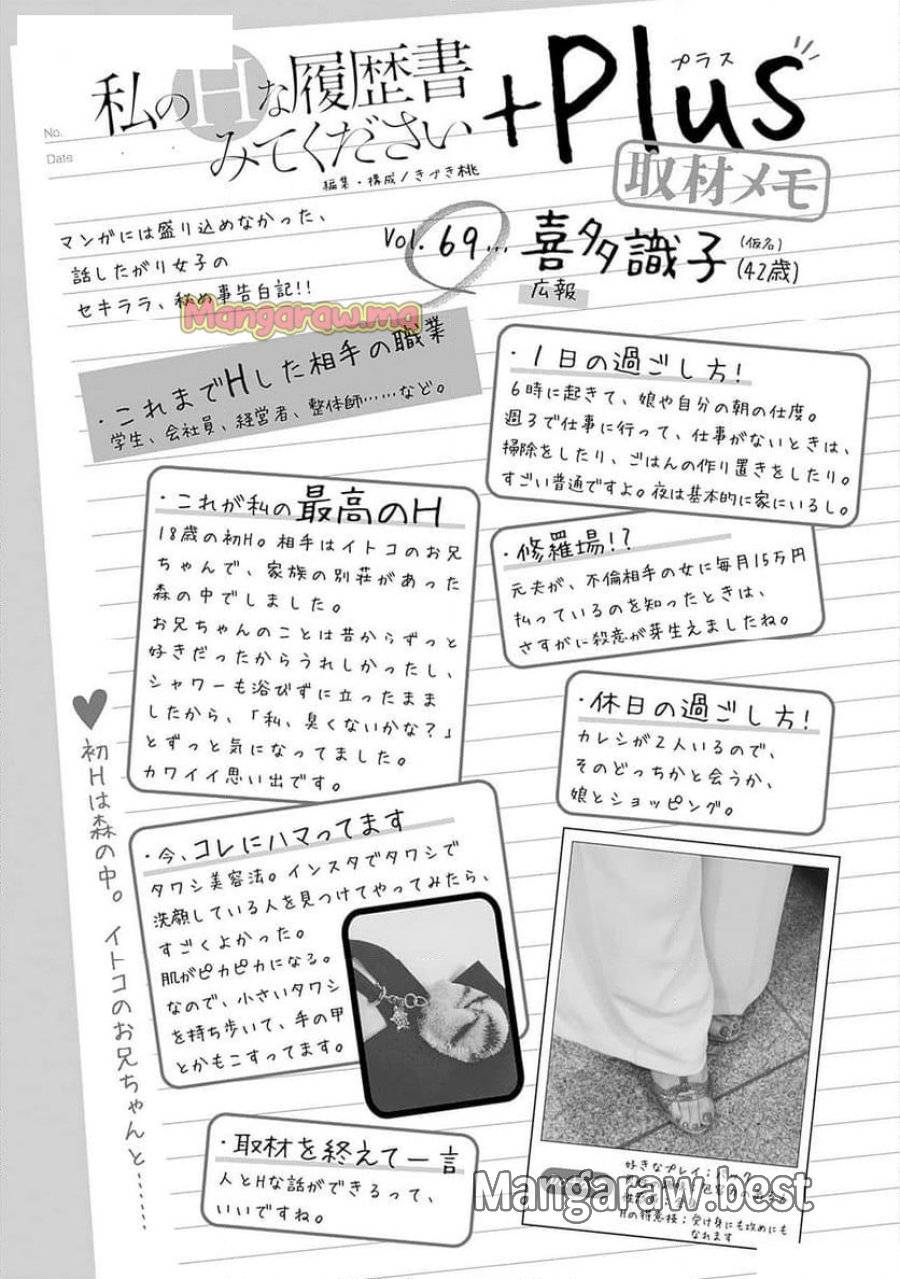 No.
Date
私のHな履歴書
みてください
+Plus
プラス
編集・構成/きづき桃
取材メモ
マンガには盛り込めなかった、
話したがり女子の
セキララ、秘め事告白記!!
Vol. 69… 喜多識子 (仮名) (42歳)
広報
Mangaraw.ma
・これまでHした相手の職業
学生、会社員、経営者、整体師……など。
・1日の過ごし方!
6時に起きて、娘や自分の朝の仕度。
週3で仕事に行って、仕事がないときは、
掃除をしたり、ごはんの作り置きをしたり。
すごい普通ですよ。夜は基本的に家にいるし。
・これが私の最高のH
18歳の初H。相手はイトコのお兄
ちゃんで、家族の別荘があった
森の中でしました。
お兄ちゃんのことは昔からずっと
好きだったからうれしかったし、
シャワーも浴びずに立ったまま
したから、「私、臭くないかな?」
とずっと気になってました。
カワイイ思い出です。
・修羅場!?
元夫が、不倫相手の女に毎月15万円
払っているのを知ったときは、
さすがに殺意が芽生えましたね。
・休日の過ごし方!
カレシが2人いるので、
そのどっちかと会うか、
娘とショッピング。
♥初Hは森の中。イトコのお兄ちゃんと……
・今、コレにハマってます
タワシ美容法。インスタでタワシで
洗顔している人を見つけてやってみたら、
すごくよかった。
肌がピカピカになる。
なので、小さいタワシ
を持ち歩いて、手の甲
とかもこすってます。
・取材を終えて一言
人とHな話ができるって、
いいですね。
好きなプレイ;バック
Hの得意技;受け身にも攻めにも
なれます
Mangaraw.best